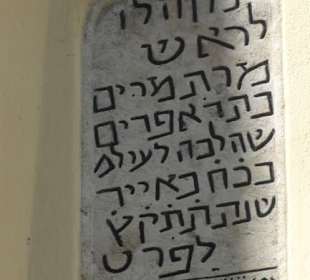 לראש
מרת מרים
בת ר אפרים
שהלכה לעולמ
בכח באייר
שנת תתקץ
לפרט